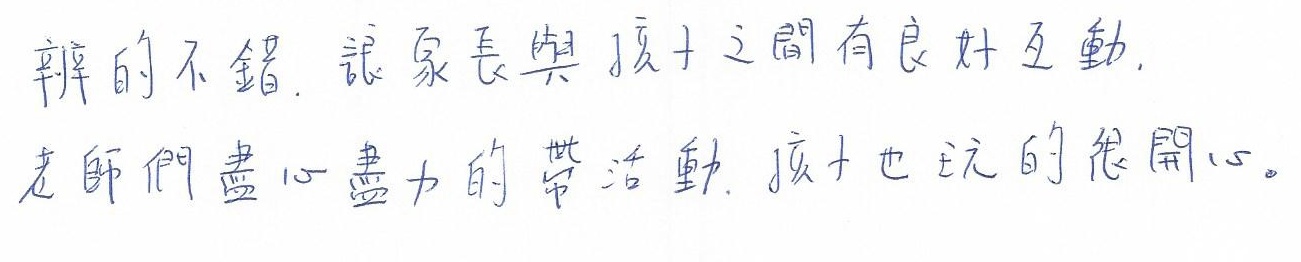 辦的不錯.讓家長與孩子之間有良好互動.
老師們盡心盡力的帶活動.孩子也玩的很開心。